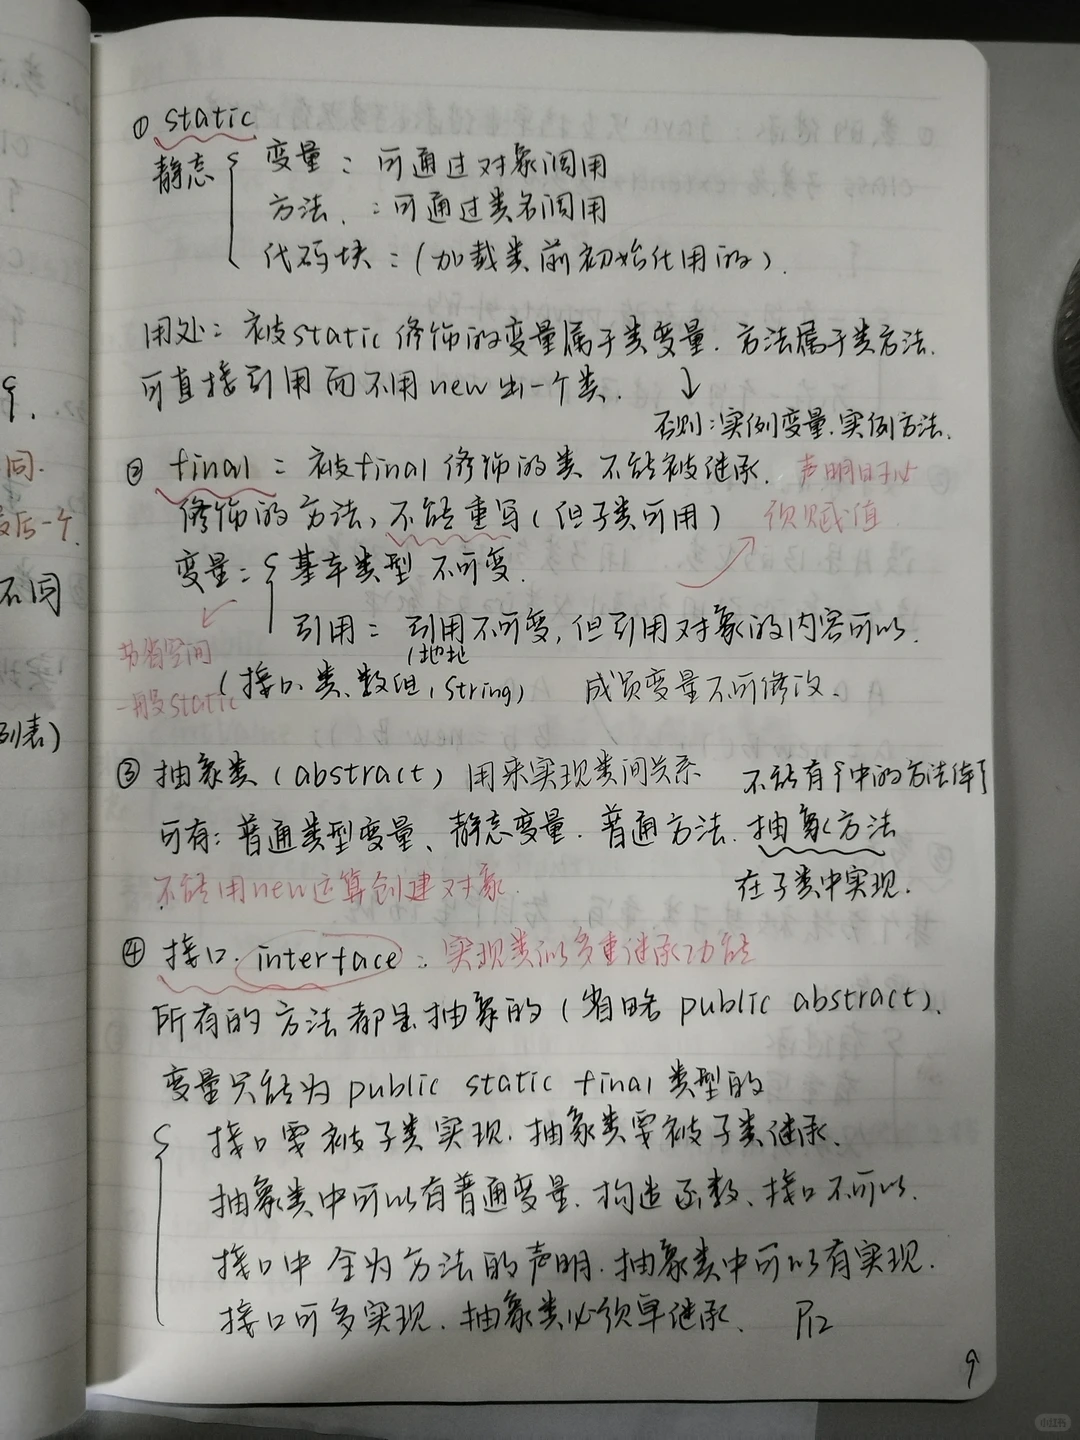 ① static
静态 { 变量：可通过对象调用
方法、：可通过类名调用
代码块：（加载类前初始化用的）.
用处：被static修饰的变量属于类变量.方法属于类方法.
可直接引用而不用new出一个类.
↓
否则：实例变量.实例方法.
② final：被final修饰的类 不能被继承.
声明时必须赋值
修饰的方法，不能重写（但子类可用）
变量：{ 基本类型 不可变.
引用：引用不可变，但引用对象的内容可以.
（地址
节省空间
一般static
（接口、类、数组，String）
成员变量不可修改、
③ 抽象类（abstract）用来实现类间关系
不能有{}中的方法体
可有：普通类型变量、静态变量.普通方法.抽象方法
在子类中实现.
不能用new运算创建对象.
④ 接口.interface：实现类似多重继承功能
所有的方法都是抽象的（省略 public abstract）.
变量只能为public static final类型的
{ 接口要被子类实现.抽象类要被子类继承.
抽象类中可以有普通变量.构造函数、接口不可以.
接口中全为方法的声明.抽象类中可以有实现.
接口可多实现.抽象类必须单继承、 P12
9
9.
同.
最后一个
不同
列表）
小红书